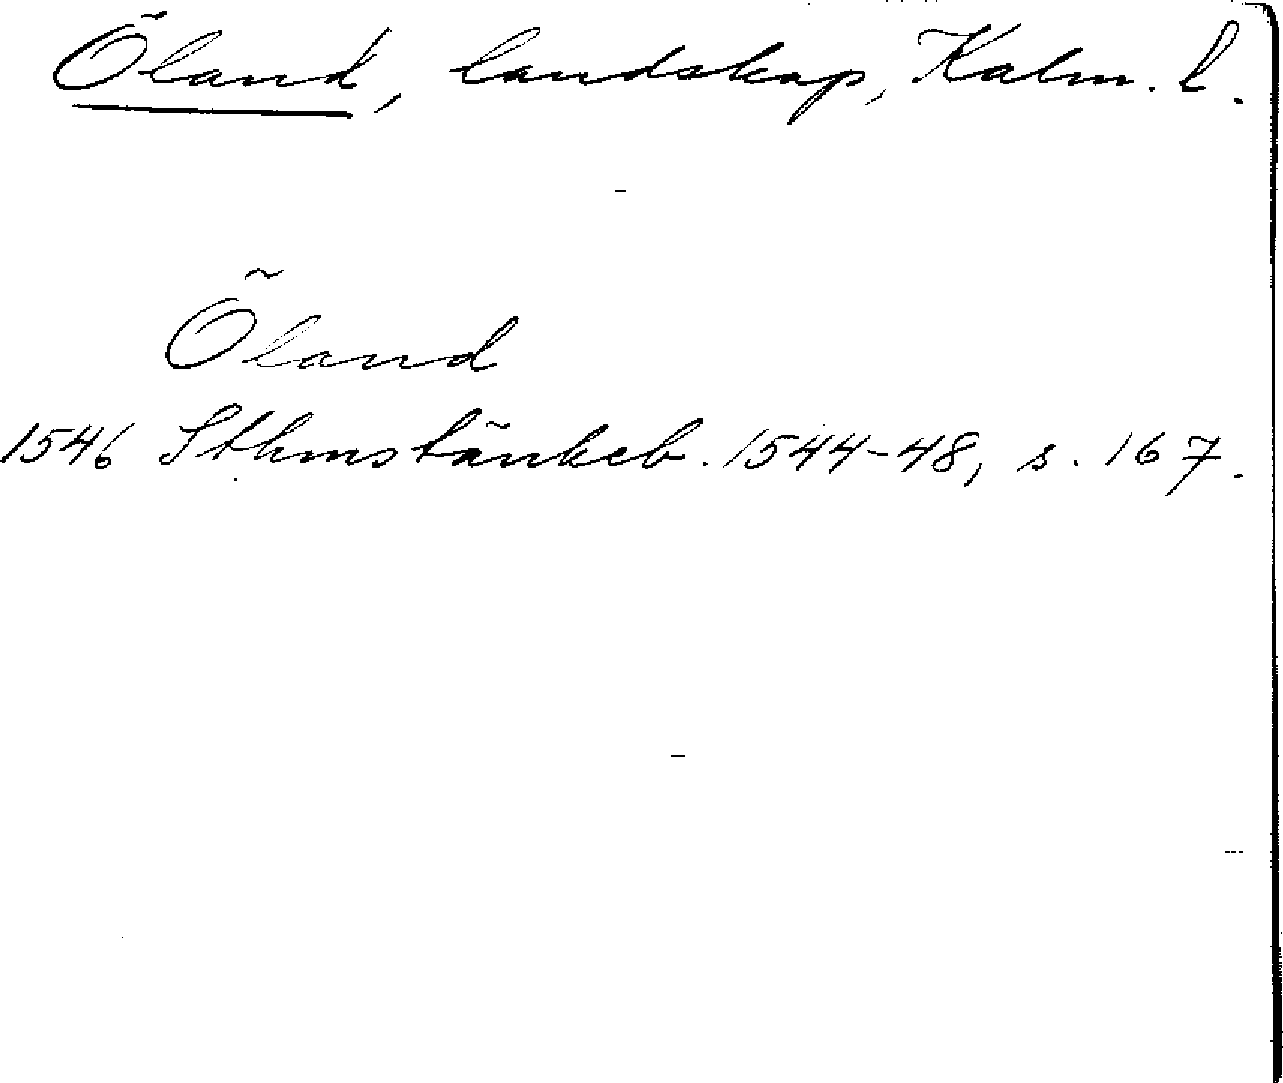 Öland, landskap, Kalm. l.
Öland
1546 Sthmstänkeb. 1544-48, s. 167.